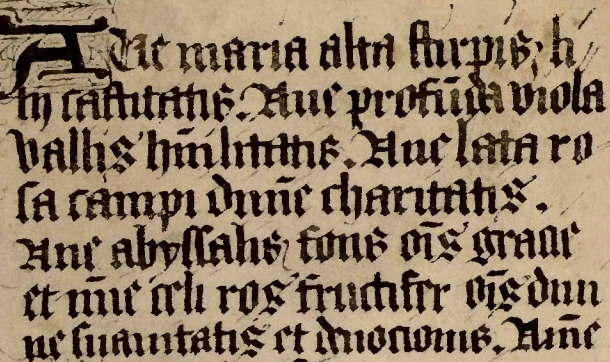 Aue maria alta stirpis, li
lij castitatis. Aue profūda viola
vallis hūilitatis. Aue lata ro
sa campi diuīe charitatis.
Aue abyssalis fons oīs gracie
et mīe celi ros fructifer oīs diui
ne suauitatis et deuocionis. Amē